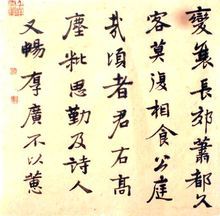 變襄長郊蕭都久
客莫復相食公庭
哉頃者君右高
塵粃思勤及詩人
又暢厚廣不以蕙